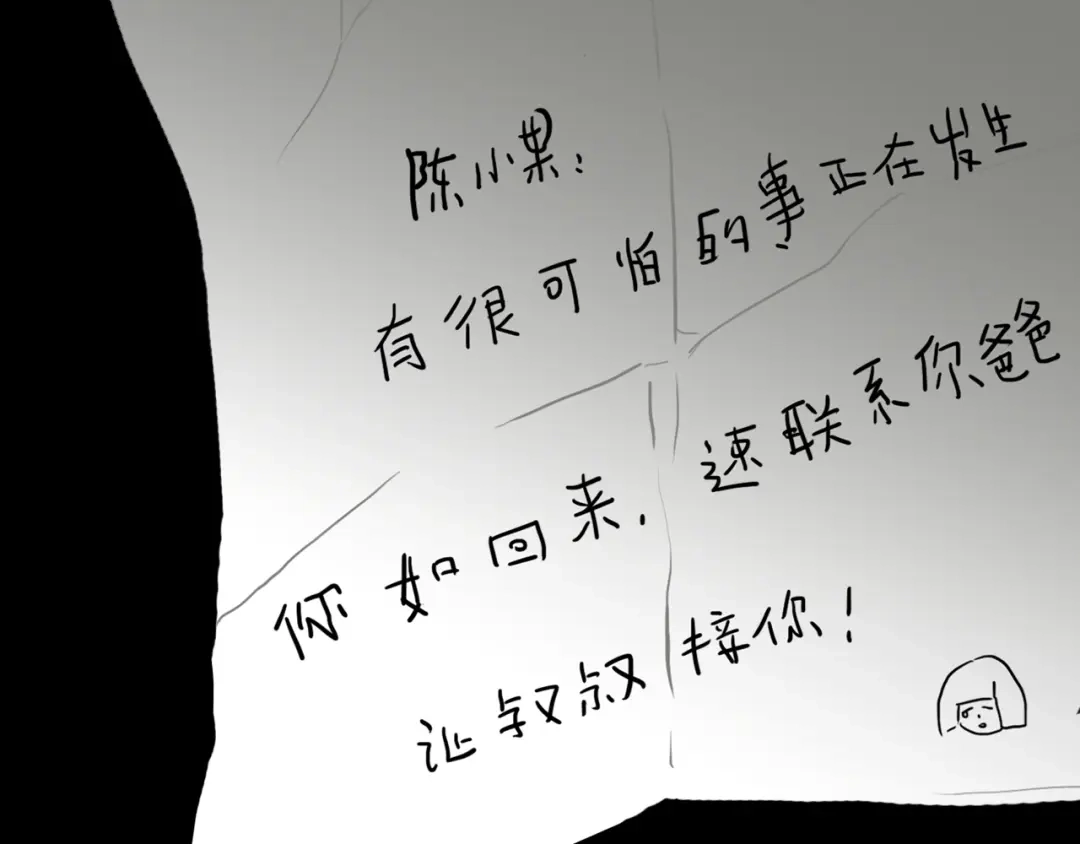 陈小果：
有很可怕的事正在发生
你如回来，速联系你爸爸
让叔叔接你！